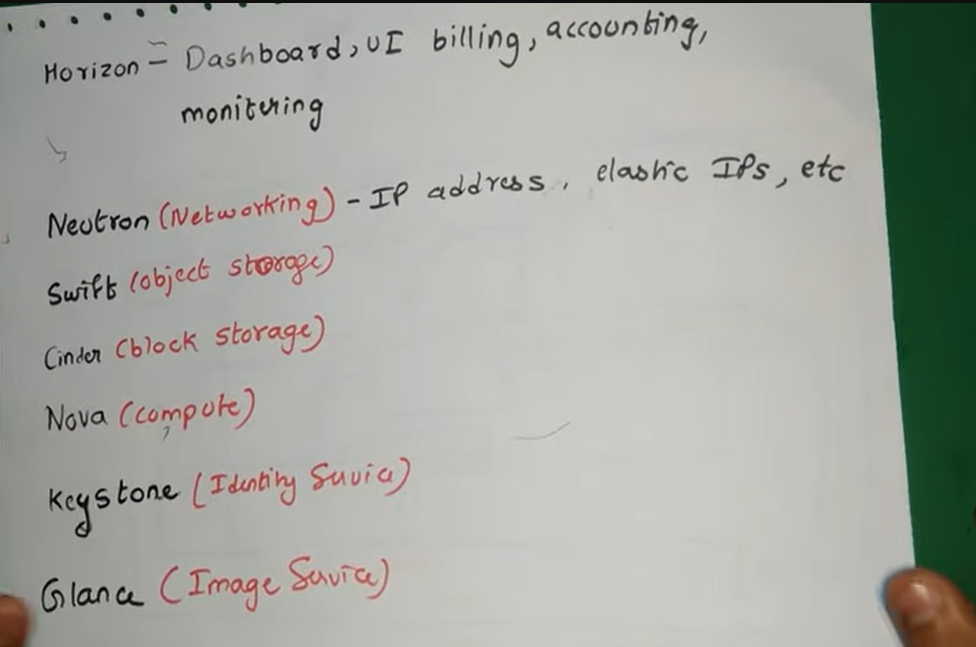 Horizon = Dashboard, UI billing, accounting,
monitering
Neutron (Networking) - IP address, elastic IPs, etc
Swift (object storage)
Cinder (block storage)
Nova (compute)
Keystone (Identity Service)
Glance (Image Service)